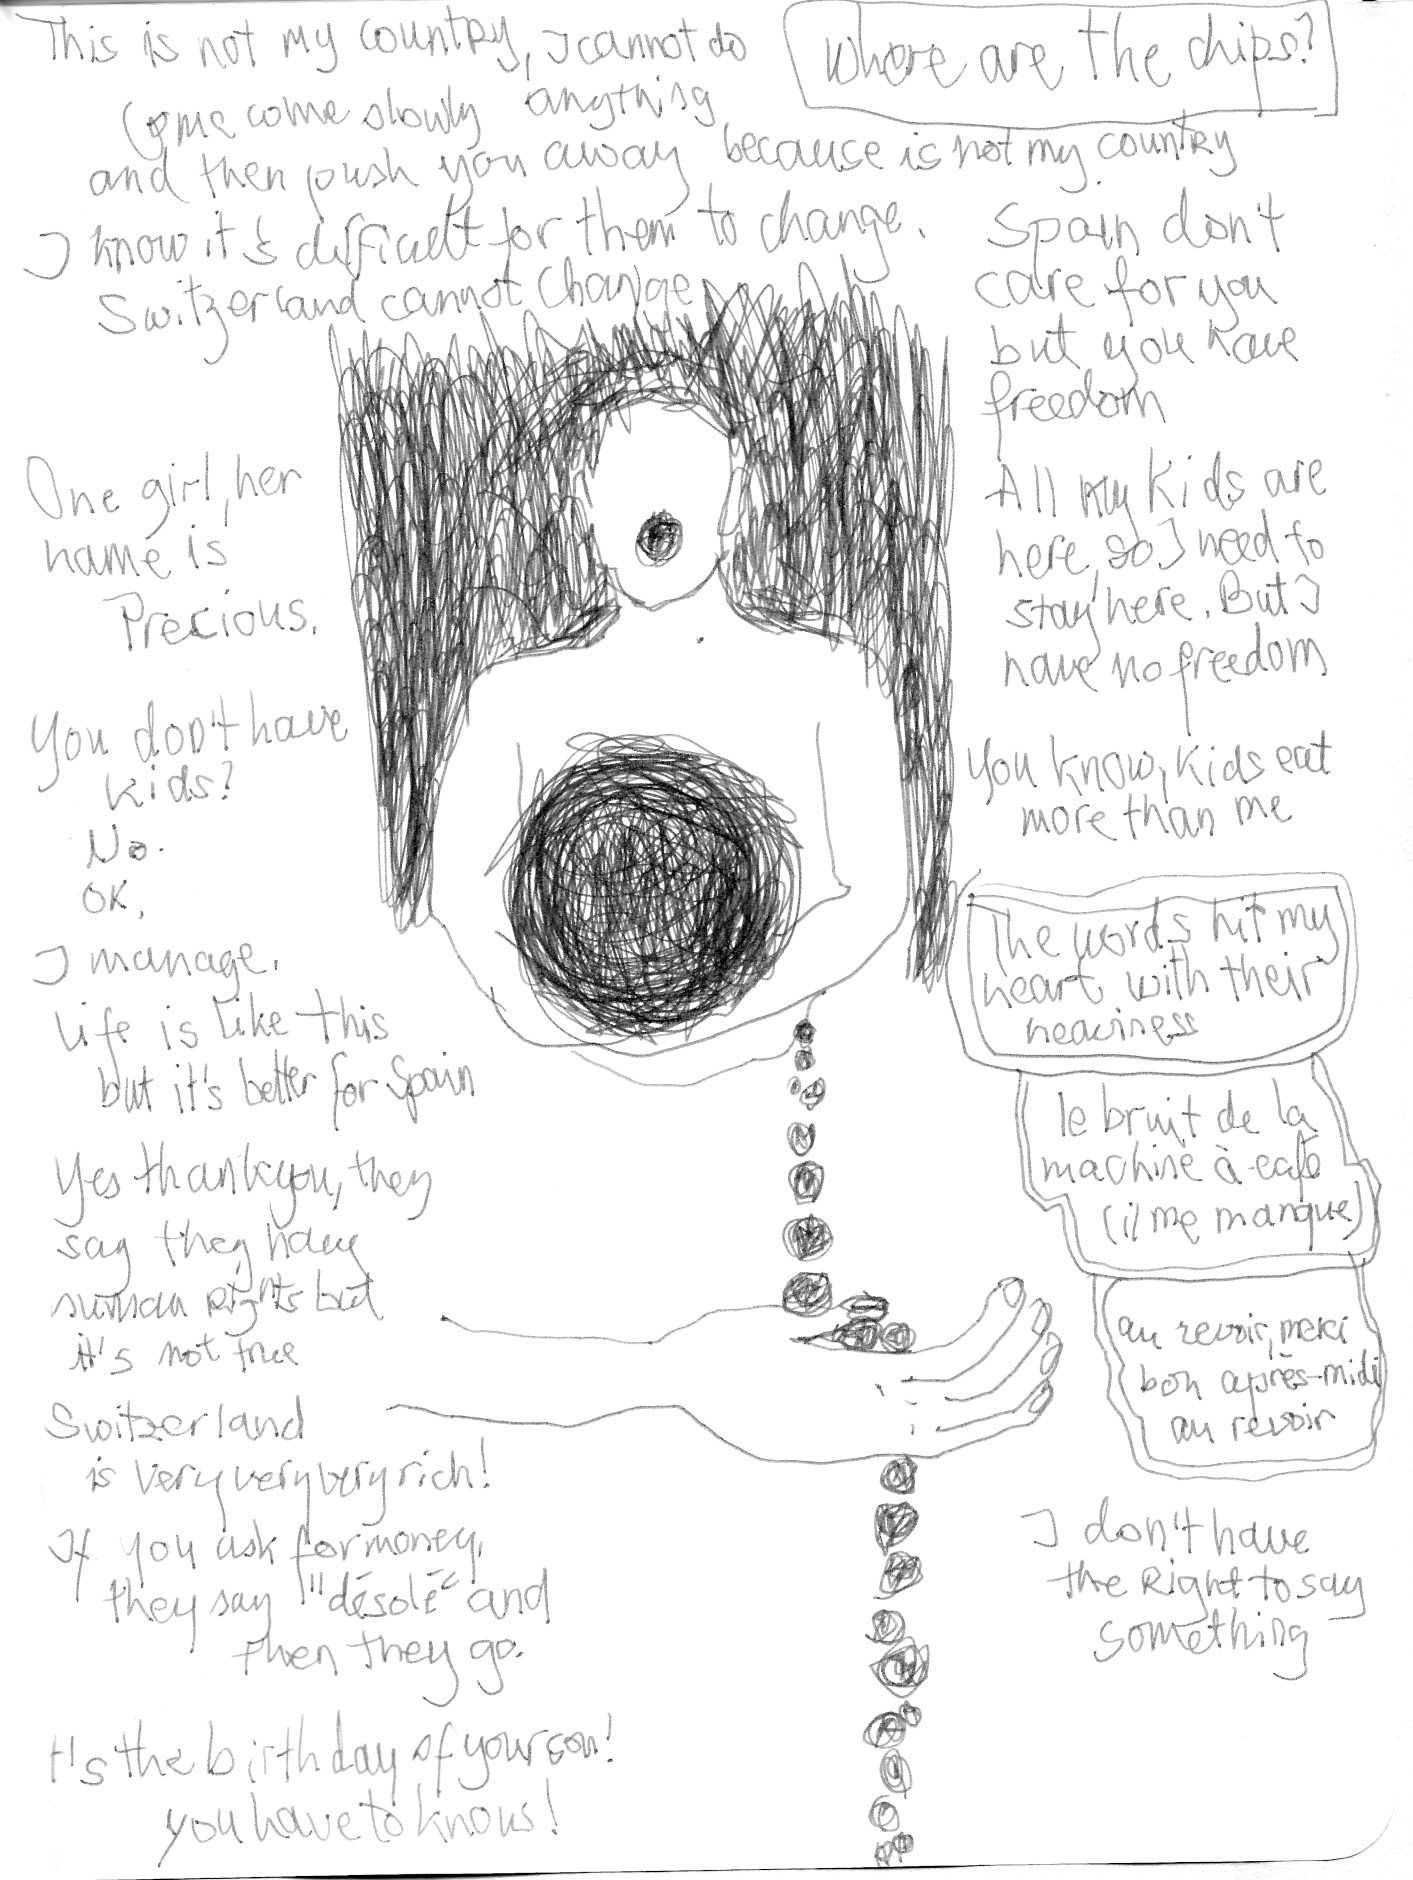 This is not my country, I cannot do
anything
because is not my country
Come come slowly
and then push you away
I know it's difficult for them to change.
Switzerland cannot change
where are the chips?
Spain don't
care for you
but you have
freedom
One girl, her
name is
Precious.
All my kids are
here, so I need to
stay here. But I
have no freedom
You don't have
kids?
No.
OK,
You know, kids eat
more than me
I manage.
Life is like this
but it's better for Spain
The words hit my
heart with their
heaviness
le bruit de la
machine à café
(il me manque)
Yes thank you, they
say they have
human rights but
it's not true
au revoir, merci
bon après-midi
au revoir
Switzerland
is very very very rich!
If you ask for money,
they say "désolé" and
then they go.
I don't have
the right to say
something
It's the birthday of your son!
you have to know!